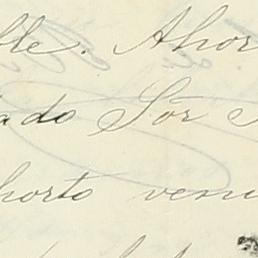 ble. Ahor
ado Sör
horto veni